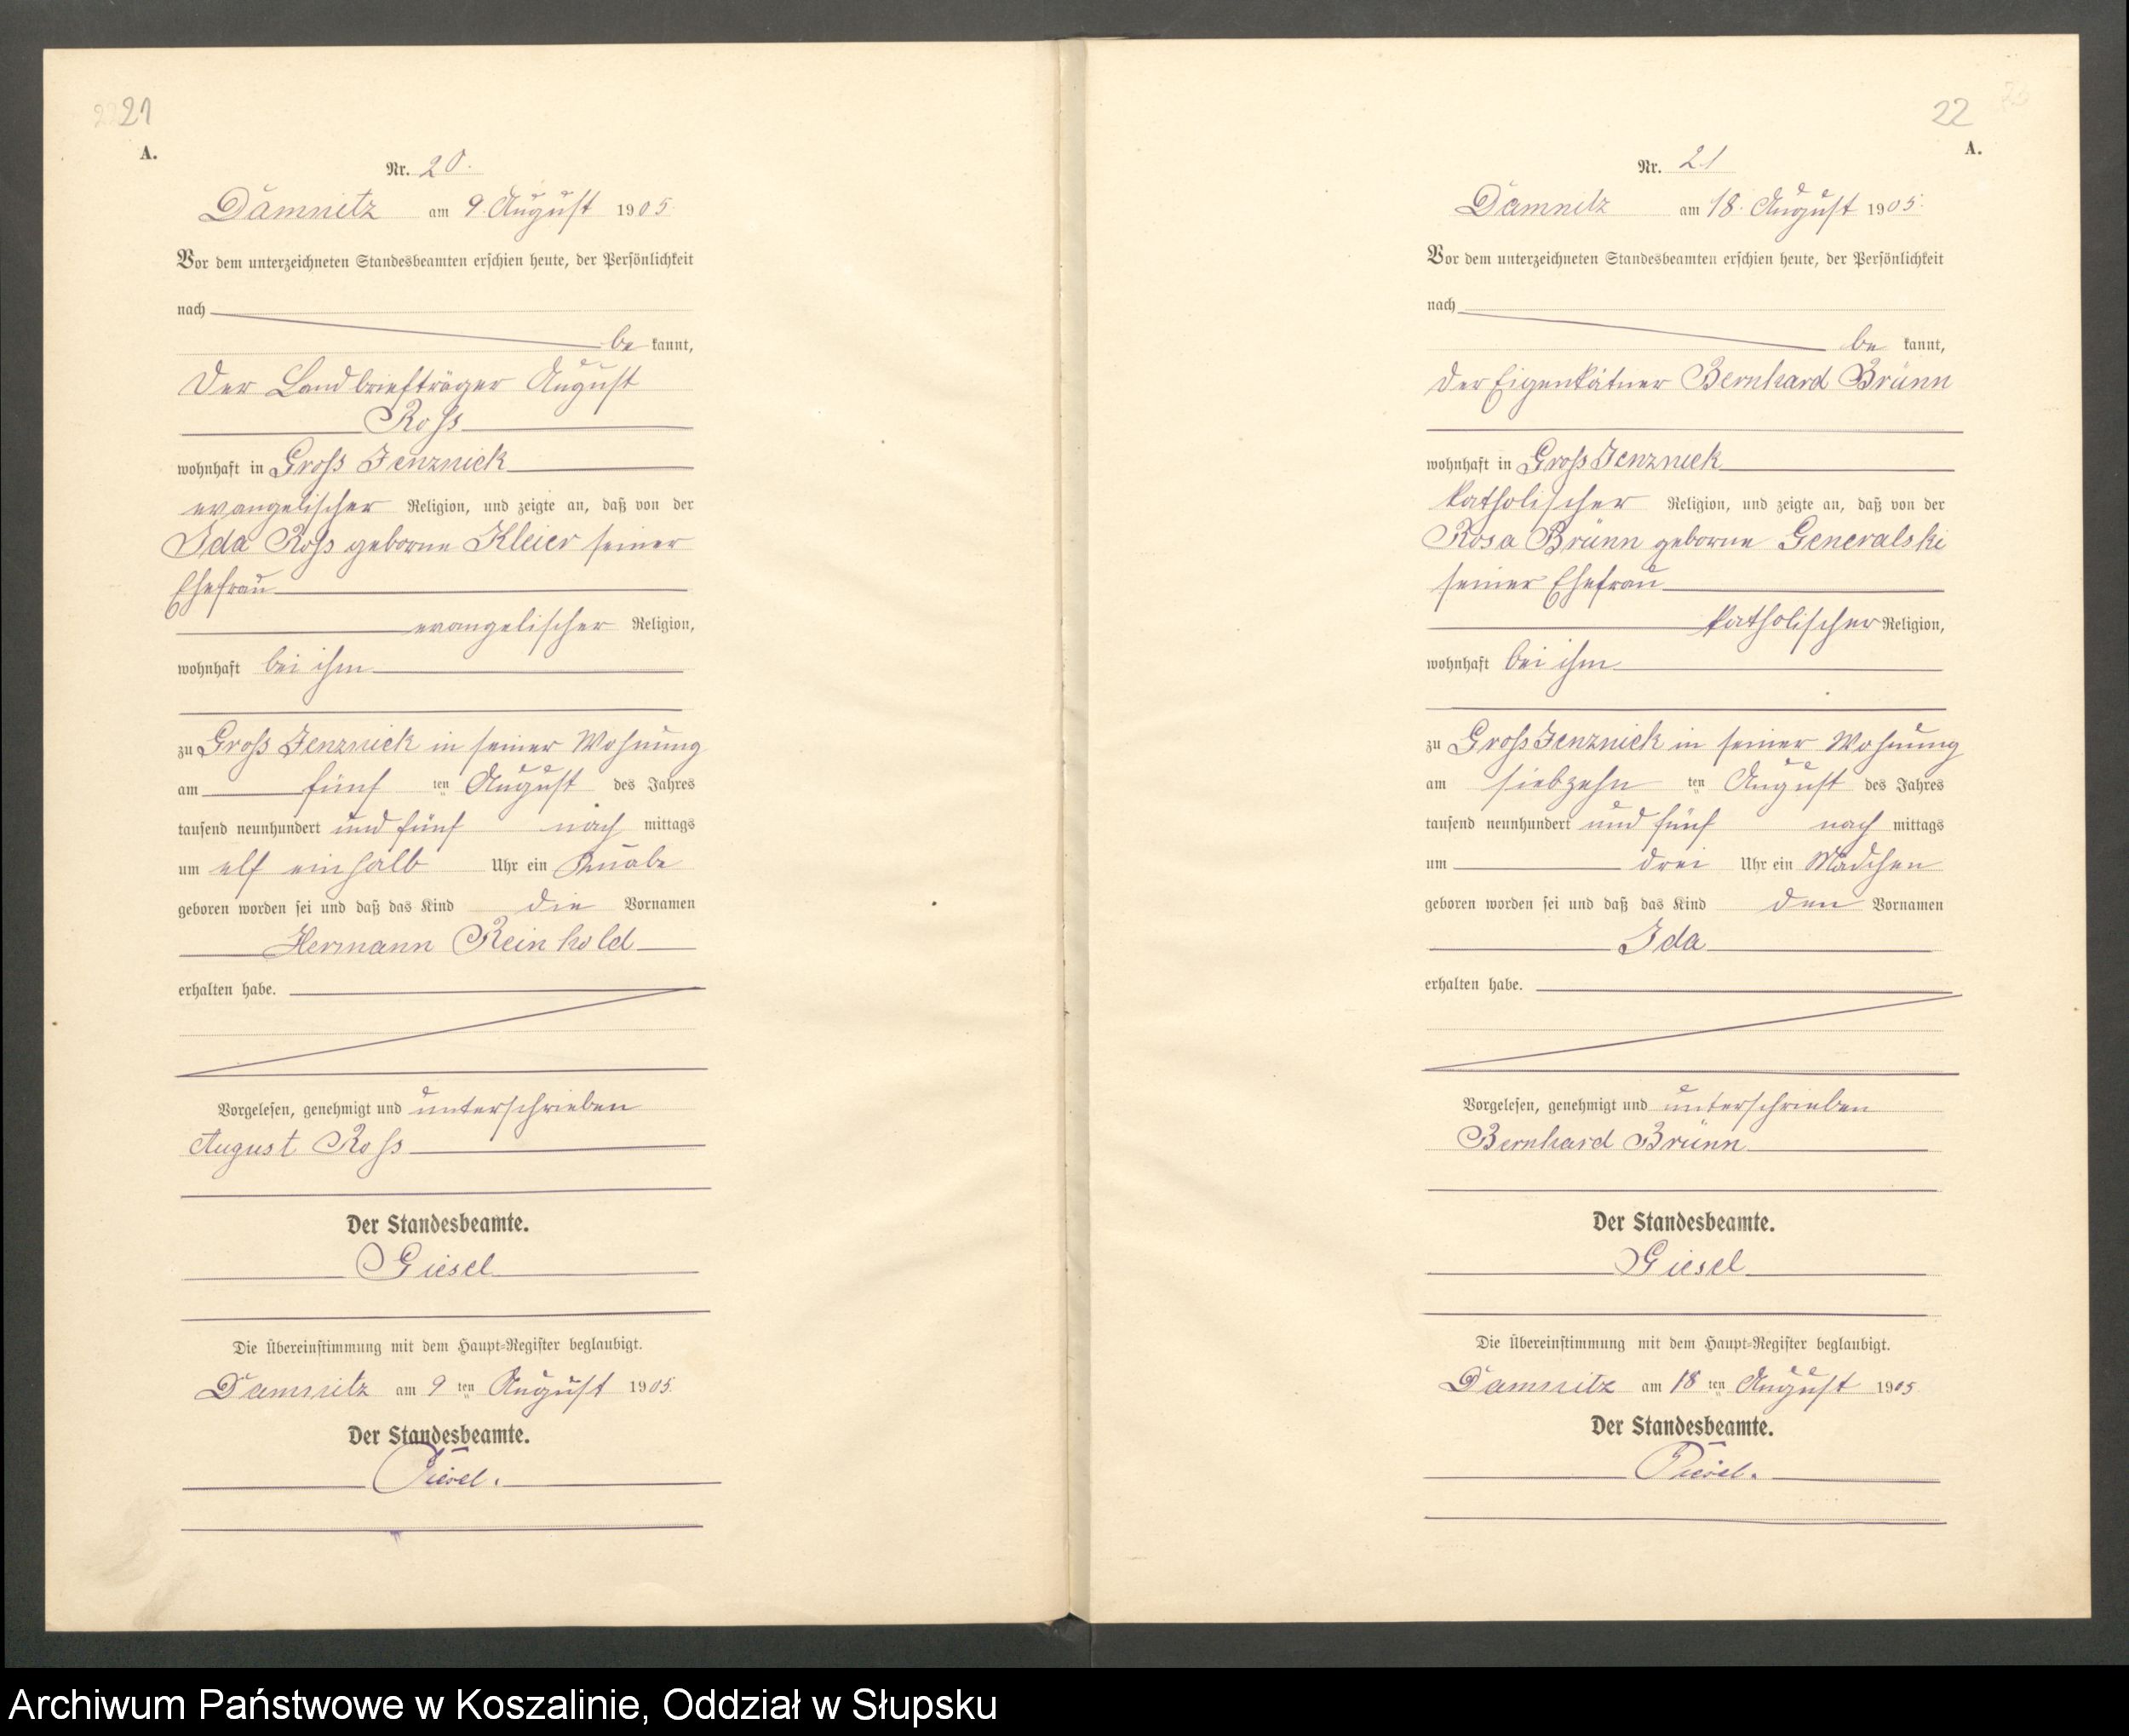 21
A.
Nr. 20.
Damnitz am 9. August 1905
Vor dem unterzeichneten Standesbeamten erschien heute, der Persönlichkeit
nach
be kannt,
Der Landbriefträger August
Roß
wohnhaft in Groß Jenznick
evangelischer Religion, und zeigte an, daß von der
Ida Roß geborne Kleier seiner
Ehefrau
evangelischer Religion,
wohnhaft bei ihm
zu Groß Jenznick in seiner Wohnung
am fünf ten August des Jahres
tausend neunhundert und fünf nach mittags
um elf einhalb Uhr ein Knabe
geboren worden sei und daß das Kind die Vornamen
Hermann Reinhold
erhalten habe.
Vorgelesen, genehmigt und unterschrieben
August Roß
Der Standesbeamte.
Giesel
Die Übereinstimmung mit dem Haupt-Register beglaubigt.
Damnitz am 9 ten August 1905.
Der Standesbeamte.
Giesel.
22
A.
Nr. 21
Damnitz am 18. August 1905.
Vor dem unterzeichneten Standesbeamten erschien heute, der Persönlichkeit
nach
be kannt,
der Eigenkätner Bernhard Brünn
wohnhaft in Groß Jenznick
katholischer Religion, und zeigte an, daß von der
Rosa Brünn geborne Generalski
seiner Ehefrau
katholischer Religion,
wohnhaft bei ihm
zu Groß Jenznick in seiner Wohnung
am siebzehn ten August des Jahres
tausend neunhundert und fünf nach mittags
um drei Uhr ein Mädchen
geboren worden sei und daß das Kind den Vornamen
Ida
erhalten habe.
Vorgelesen, genehmigt und unterschrieben
Bernhard Brünn
Der Standesbeamte.
Giesel
Die Übereinstimmung mit dem Haupt-Register beglaubigt.
Damnitz am 18 ten August 1905
Der Standesbeamte.
Giesel.
Archiwum Państwowe w Koszalinie, Oddział w Słupsku